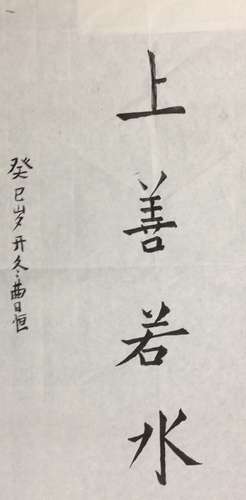 上善若水
癸巳岁开冬曹日恒